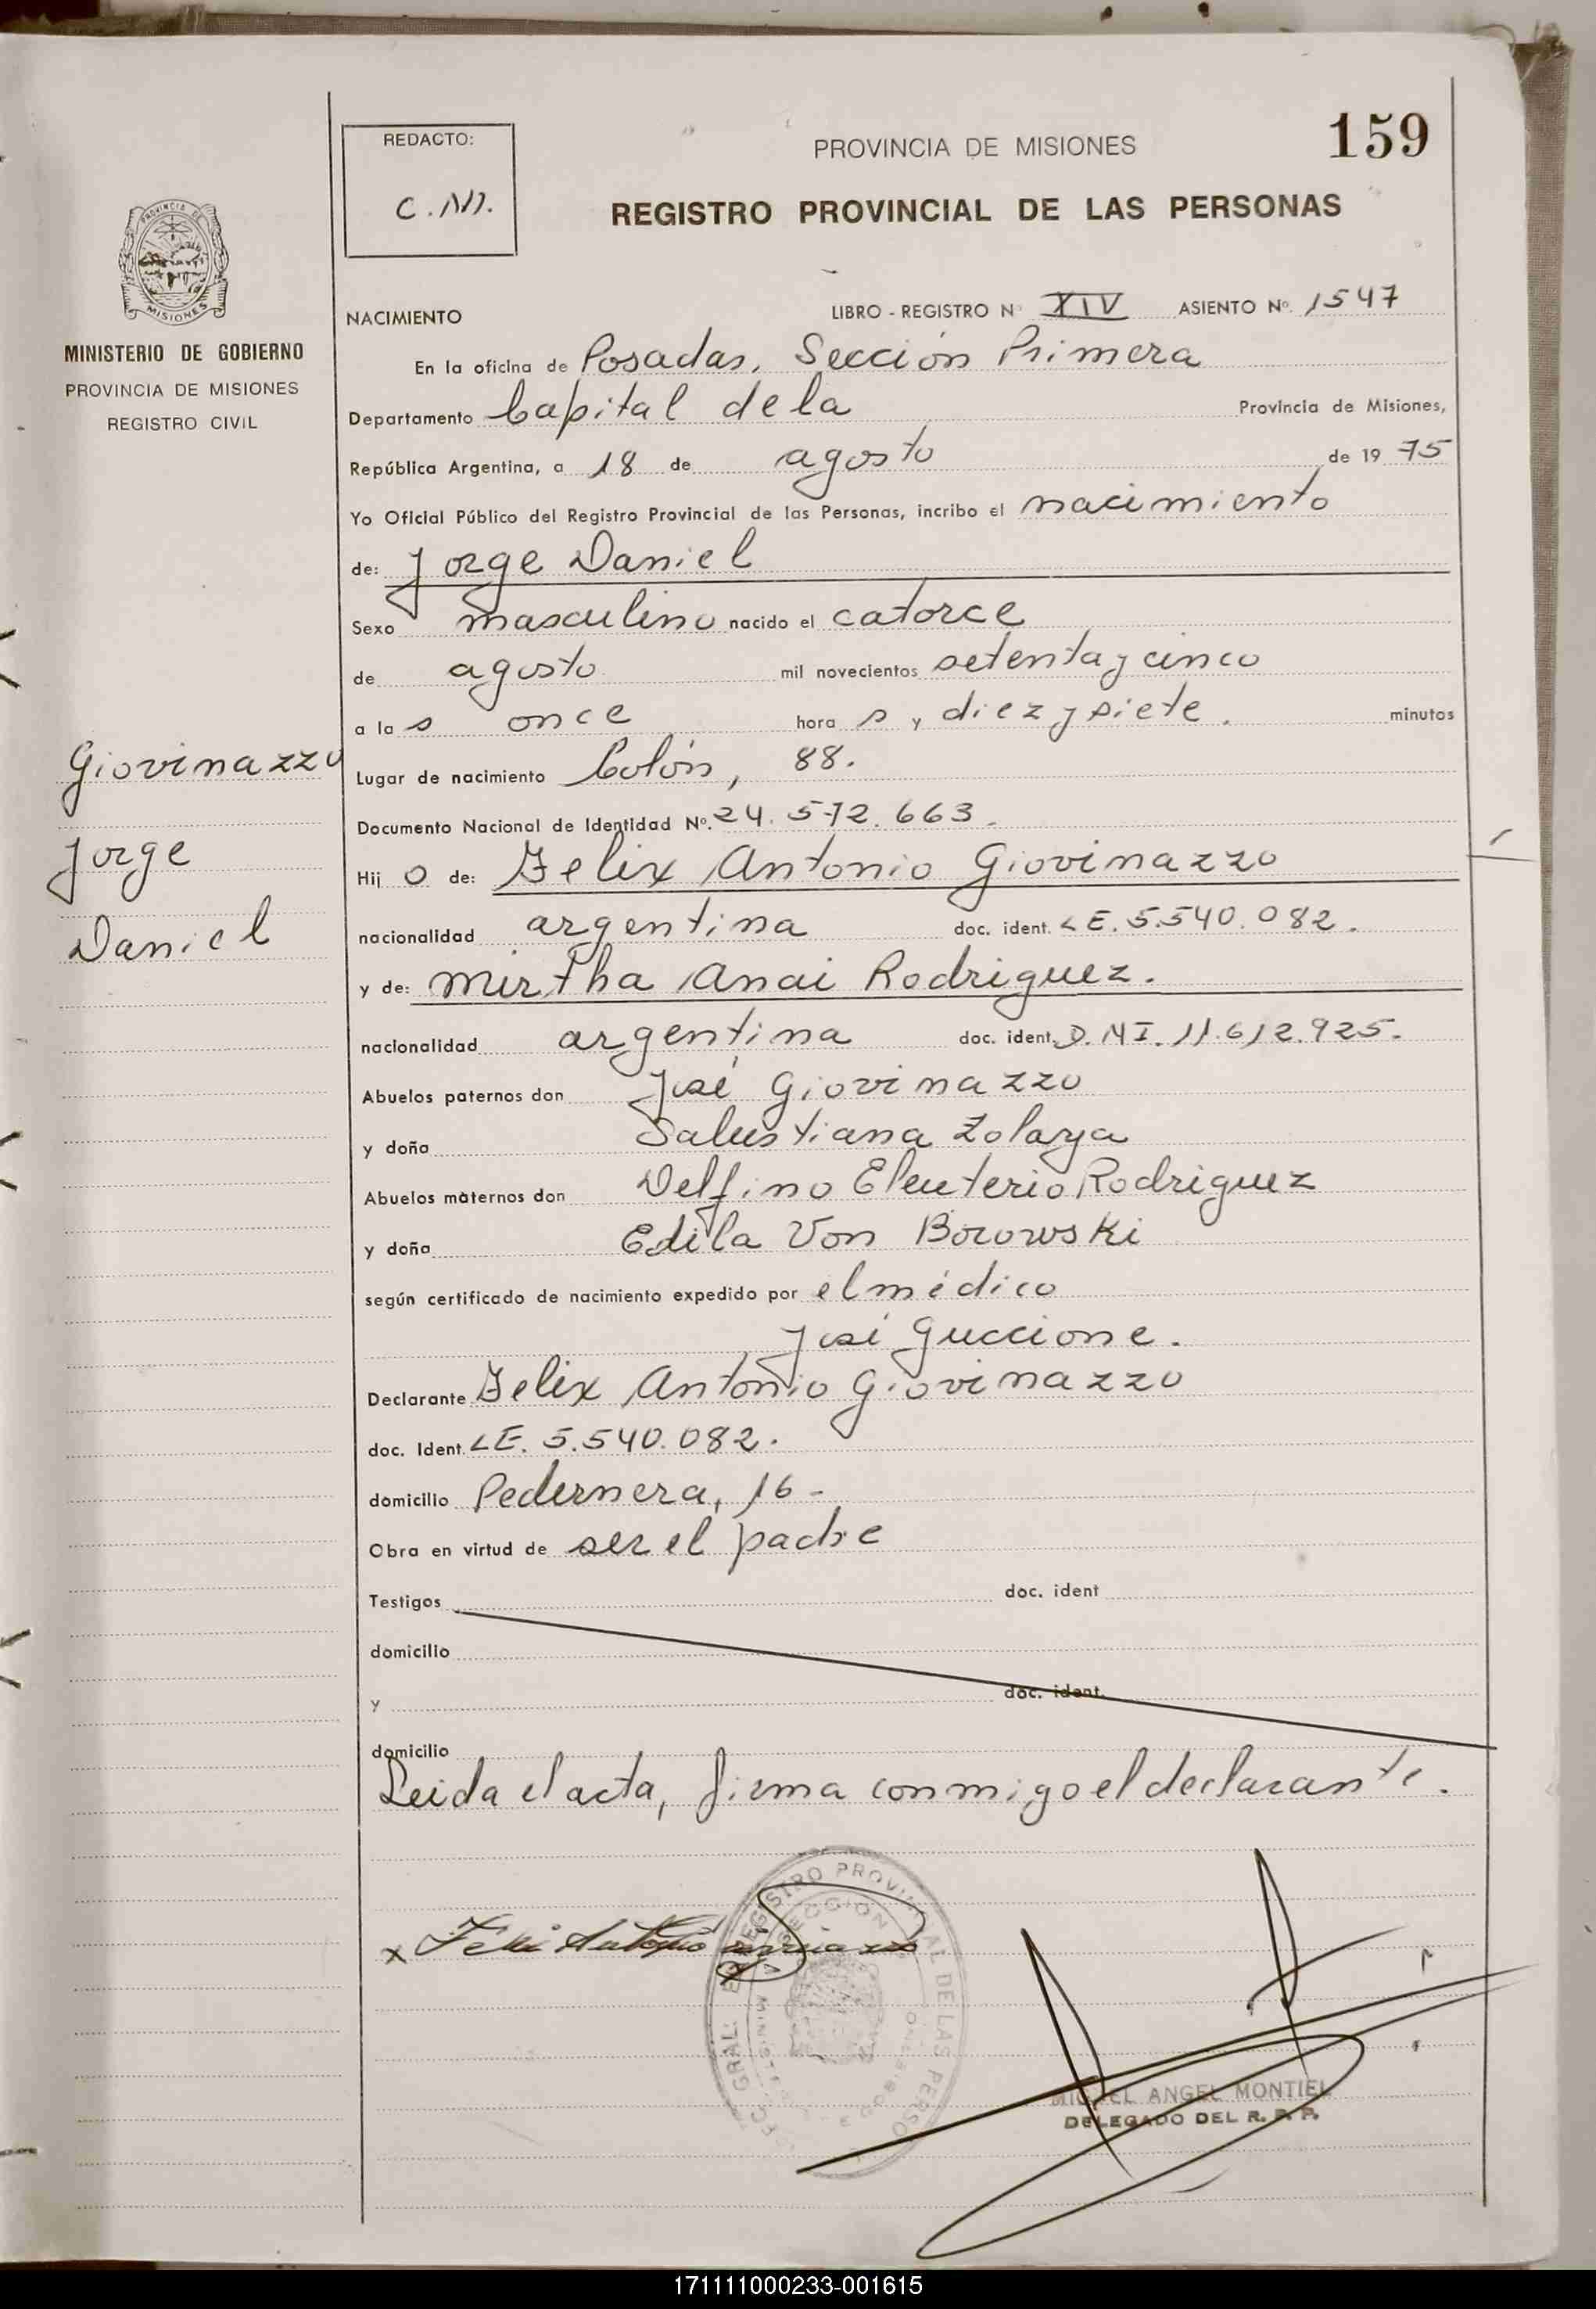 159
REDACTO:
PROVINCIA DE MISIONES
REGISTRO PROVINCIAL DE LAS PERSONAS
MISIONES
MINISTERIO DE GOBIERNO
PROVINCIA DE MISIONES
REGISTRO CIVIL
NACIMIENTO LIBRO - REGISTRO Nº XIV ASIENTO Nº. 1547
En la oficina de Posadas, Sección Primera
Departamento Capital de la Provincia de Misiones,
República Argentina, a 18 de agosto de 19 75
Yo Oficial Público del Registro Provincial de las Personas, incribo el nacimiento
de: Jorge Daniel
Sexo masculino nacido el catorce
de agosto mil novecientos setenta y cinco
a la s once hora s y diez y siete. minutos
Giovinazzo
Jorge
Daniel
Lugar de nacimiento Colón, 88.
Documento Nacional de Identidad Nº. 24.572.663.
Hij o de: Felix Antonio Giovinazzo
nacionalidad argentina doc. ident. LE. 5.540.082.
y de: Mirtha Anai Rodriguez.
nacionalidad argentina doc. ident. D.N.I. 11.612.925.
Abuelos paternos don José Giovinazzo
y doña Salustiana Zolaya
Abuelos maternos don Delfino Eleuterio Rodriguez
y doña Edila Von Borowski
según certificado de nacimiento expedido por el médico
José Guccione.
Declarante Felix Antonio Giovinazzo
doc. Ident. LE. 5.540.082.
domicilio Pedernera, 16 -
Obra en virtud de ser el padre
Testigos doc. ident
domicilio
y doc. ident.
domicilio
Leida el acta, firma conmigo el declarante.
x Felix Antonio Giovinazzo
REGISTRO PROVINCIAL DE LAS PERSO
MIGUEL ANGEL MONTIEL
DELEGADO DEL R. P. P.
171111000233-001615